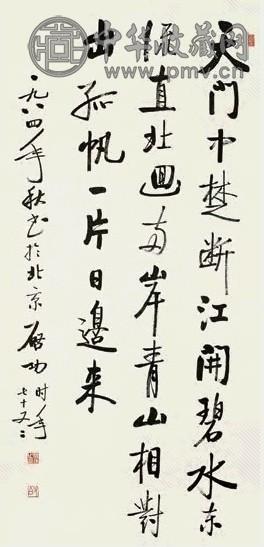 中华收藏网
www.pmv.cn
天門中楚断江開碧水东
流直北迴两岸青山相對
出孤帆一片日邊来
一九八四年秋书於北京 启功 时年
七十又二